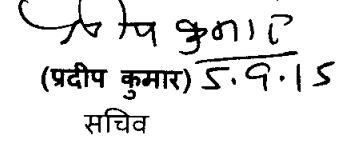 प्रदीप कुमार
(प्रदीप कुमार) 5.9.15
सचिव